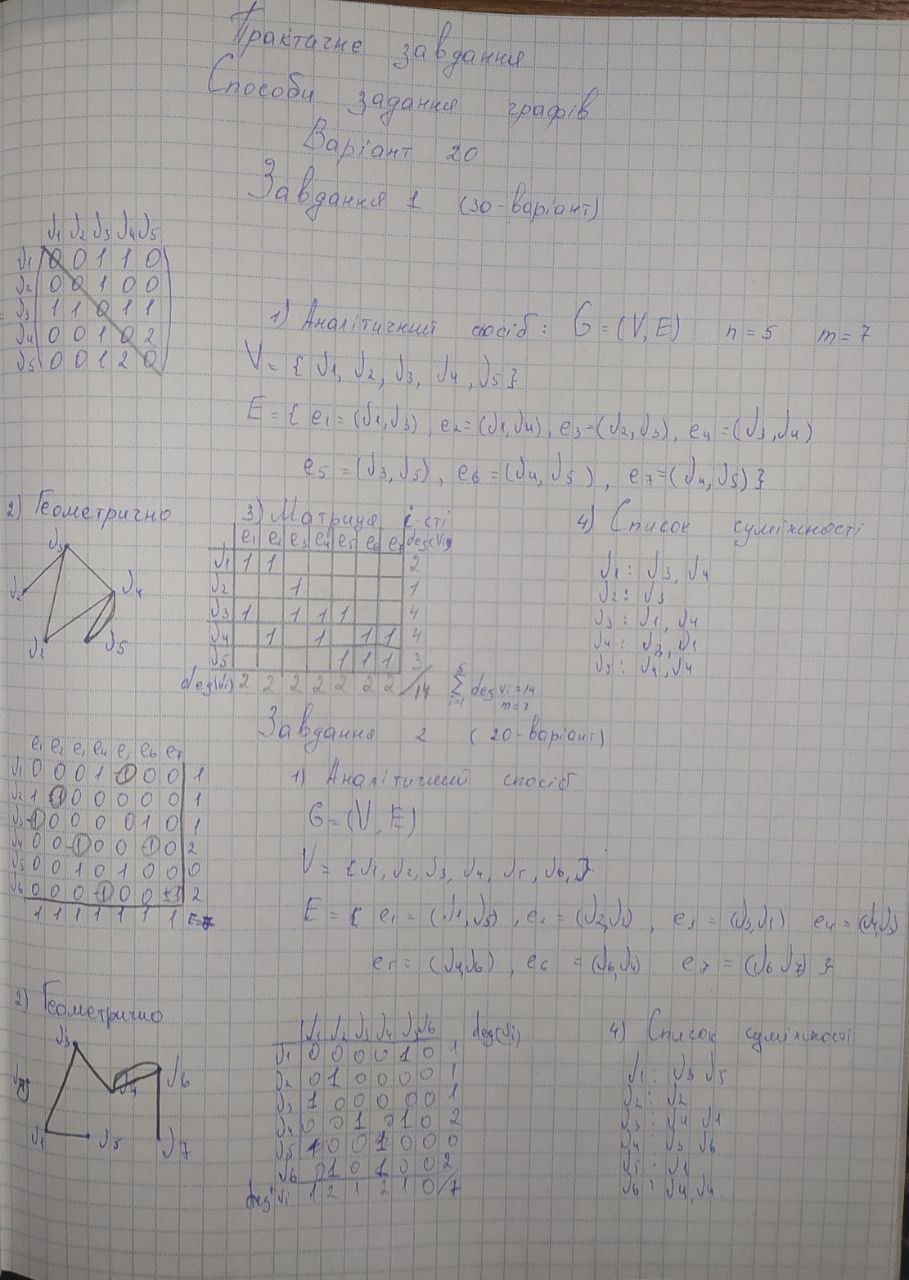 Практичне завдання
Способи задання графів
Варіант 20
Завдання 1 (30-варіант)
V1 V2 V3 V4 V5
V1 0 0 1 1 0
V2 0 0 1 0 0
V3 1 1 0 1 1
V4 0 0 1 0 2
V5 0 0 1 2 0
1) Аналітичний спосіб: G = (V, E) n = 5 m = 7
V = { V1, V2, V3, V4, V5 }
E = { e1 = (V1, V3), e2 = (V1, V4), e3 = (V2, V3), e4 = (V3, V4)
e5 = (V3, V5), e6 = (V4, V5), e7 = (V4, V5) }
2) Геометрично
V3
V2
V4
V1
V5
3) Матриця і-сті
e1 e2 e3 e4 e5 e6 e7 deg(Vi)
V1 1 1 2
V2 1 1
V3 1 1 1 1 4
V4 1 1 1 1 4
V5 1 1 1 3
deg(Vi) 2 2 2 2 2 2 2 /14
5 Σ i=1 deg Vi = 14
m = 7
4) Список суміжності
V1: V3, V4
V2: V3
V3: V1, V4
V4: V3, V1
V5: V4, V4
Завдання 2 (20-варіант)
e1 e2 e3 e4 e5 e6 e7
V1 0 0 0 1 0 0 1
V2 1 0 0 0 0 0 1
V3 0 0 0 0 1 0 1
V4 0 0 0 0 0 2
V5 0 0 1 0 1 0 0 0
V6 0 0 0 0 0 2
1 1 1 1 1 1 1 E=7
1) Аналітичний спосіб
G = (V, E)
V = { V1, V2, V3, V4, V5, V6, }
E = { e1 = (V1, V5), e2 = (V2, V2), e3 = (V3, V1) e4 = (V4, V3)
e5 = (V4, V6), e6 = (V6, V4) e7 = (V6 V7) }
2) Геометрично
V3
V4
V6
V1
V5
V7
V1 V2 V3 V4 V5 V6 deg(Vi)
V1 0 0 0 0 1 0 1
V2 0 1 0 0 0 0 1
V3 1 0 0 0 0 0 1
V4 0 0 1 0 1 0 2
V5 1 0 0 1 0 0 0
V6 0 1 0 1 0 0 2
deg+Vi 1 2 1 2 1 0 /7
4) Список суміжності
V1: V3 V5
V2: V2
V3: V4 V1
V4: V3 V6
V5: V1
V6: V4, V4